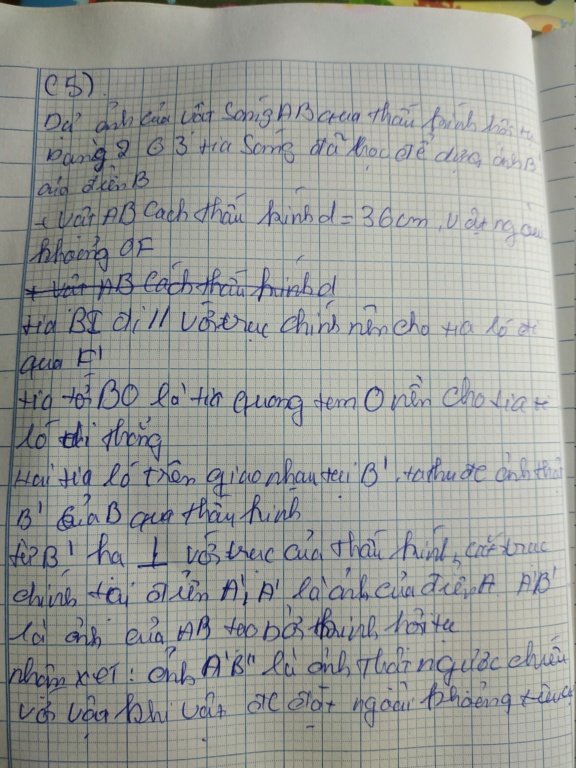 C5)
Dự ảnh của vật sáng AB qua thấu kính hội tụ
Dùng 2 G 3 tia Sáng đã học để dựng ảnh B'
của điểm B
+ Vật AB Cách thấu kính d = 36cm, vật ngoài
khoảng OF
+ Vật AB Cách thấu kính d
tia BI đi // với trục chính nên cho tia ló đi
qua F'
tia tới BO là tia quang tâm O nên cho tia
ló đi thẳng
Hai tia ló trên giao nhau tại B', ta thu đc ảnh thật
B' của B qua thấu kính
từ B' hạ ⊥ với trục của thấu kính, cắt trục
chính tại điểm A', A' là ảnh của điểm A A'B'
là ảnh của AB tạo bởi kính hội tụ
nhận xét: ảnh A'B' là ảnh thật ngược chiều
với vật khi vật đc đặt ngoài khoảng tiêu cự